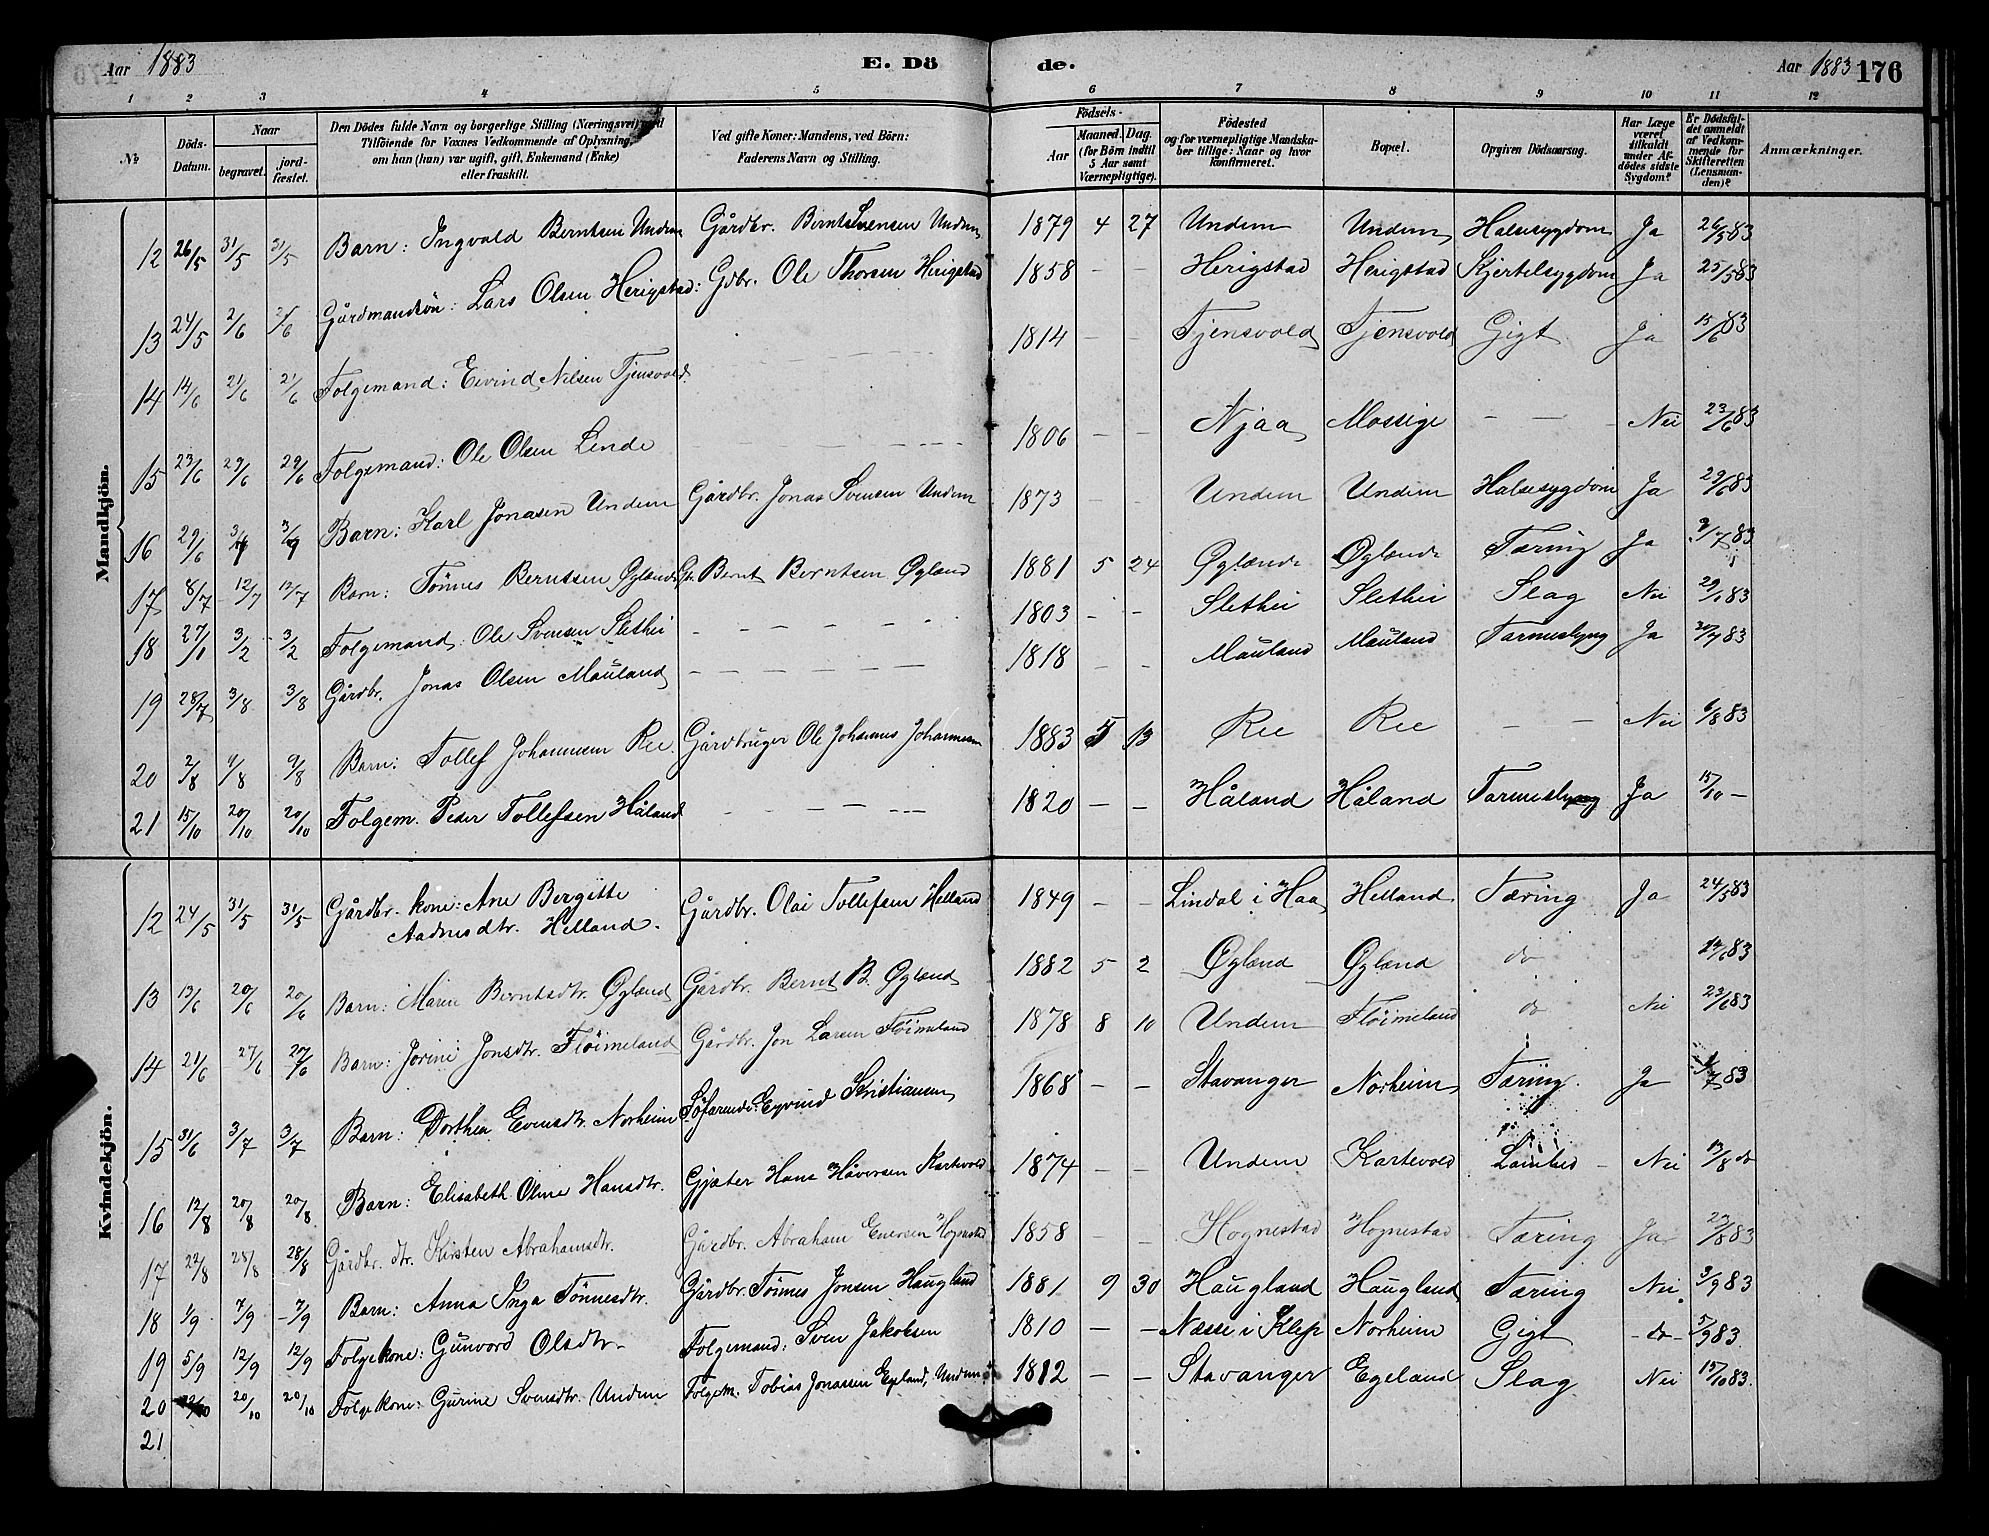 Aar 1883 E. Dö de. Aar 1883 176
1 2 3 4 5 6 7 8 9 10 11 12
№ Döds-Datum. Naar begravet. jordfæstet. Den Dödes fulde Navn og borgerlige Stilling (Næringsvei) med Tilföiende for Voxnes Vedkommende af Oplysning, om han (hun) var ugift, gift, Enkemand (Enke) eller fraskilt. Ved gifte Koner: Mandens, ved Börn: Faderens Navn og Stilling. Födsels- Aar Maaned. Dag. (for Börn indtil 5 Aar samt Værnepligtige). Födested og for værnepligtige Mandskaber tillige: Naar og hvor konfirmeret. Bopæl. Opgiven Dödsaarsag. Har Læge været tilkaldt under Afdödes sidste Sygdom? Er Dödsfaldet anmeldt af Vedkommende for Skifteretten (Lensmanden)? Anmærkninger.
Mandkjön.
12 26/5 31/5 31/5 Barn: Ingvald Berntsen Undem Gårdbr. Bernt Svensen Undem 1879 4 27 Undem Undem Halssygdom Ja 26/5 83
13 24/5 2/6 2/6 Gårdmandsön: Lars Olsen Herigstad: Gdbr. Ole Thorsen Herigstad 1858 - - Herigstad Herigstad Kjertelsygdom Ja 25/5 83
14 14/6 21/6 21/6 Folgemand: Eivind Nilsen Tjensvold - - - 1814 - - Tjensvold Tjensvold Gigt Ja 15/6 83
15 23/6 29/6 29/6 Folgemand: Ole Olsen Lende - - - 1806 - - Njaa Mossige - - Nei 23/6 83
16 29/6 Barn: Karl Jonasen Undem Gårdbr. Jonas Svensen Undem 1873 - - Undem Undem Halssygdom Ja 29/6 83
17 8/7 12/7 12/7 Barn: Tönnes Berntsen Øglænd Bernt Berntsen Øglænd 1881 5 24 Øglænd Øglænd Tæring Ja 9/7 83
18 27/1 3/2 3/2 Folgemand: Ole Svensen Slethei - - - 1803 - - Slethei Slethei Slag Nei 29/1 83
19 28/7 3/8 3/8 Gårdbr. Jonas Olsen Mauland - - - 1818 - - Mauland Mauland Ja 83
20 2/8 9/8 9/8 Barn: Tollef Johannesen Ree. Gårdbruger Ole Johannes Johannesen 1883 5 13 Ree Ree - - Nei 6/8 83
21 15/10 20/10 20/10 Folgem. Peder Tollefsen Håland - - - 1820 - - Håland Håland Ja 15/10 -
Kvindekjön.
12 24/5 31/5 31/5 Gårdbr. kone: Ane Bergitte Gårdbr. Olai Tollefsen Helland 1849 - - Lindal i Haa Helland Tæring Ja 24/5 83
Aadnesdtr. Helland.
13 13/6 20/6 20/6 Barn: Maren Berntsdtr. Øglænd Gårdbr. Bernt B. Øglænd 1882 5 2 Øglænd Øglænd do 14/6 83
14 21/6 27/6 27/6 Barn: Jorine Jonsdtr. Flöimeland Gårdbr. Jon Larsen Flöimeland 1878 8 10 Undem Flöimeland do Nei 23/6 83
15 31/6 3/7 3/7 Barn: Dorthea Evensdtr. Norheim Söfarende: Eyvind Kristiansen 1868 - - Stavanger Norheim Tæring. Ja 83
16 12/8 20/8 20/8 Barn: Elisabeth Oline Hansdtr. Gjæter Hans Håversen Kartevold 1874 - - Undem Kartevold Lamhed - Nei 13/8 do
17 22/8 28/8 28/8 Gårdbr. dtr. Kirsten Abrahamsdtr. Gårdbr. Abraham Hognestad 1858 - - Hognestad Hognestad Tæring Ja 23/8 83
18 1/9 7/9 7/9 Barn: Anna Inga Tönnesdtr. Gårdbr. Tönnes Jonsen Haugland 1881 9 30 Haugland Haugland Tæring Nei 3/9 83
19 5/9 12/9 12/9 Folgekone: Gunvord Olsdtr. Folgemand: Sven Jakobsen 1810 - - Næsse i Klep Norheim Gigt - do - 5/9 83.
20 20/10 20/10 Folgekone: Gurine Svensdtr. Undem Folgem. Tobias Jonassen Egeland, Undem 1812 - - Stavanger Egeland Slag Nei 15/10 83.
21